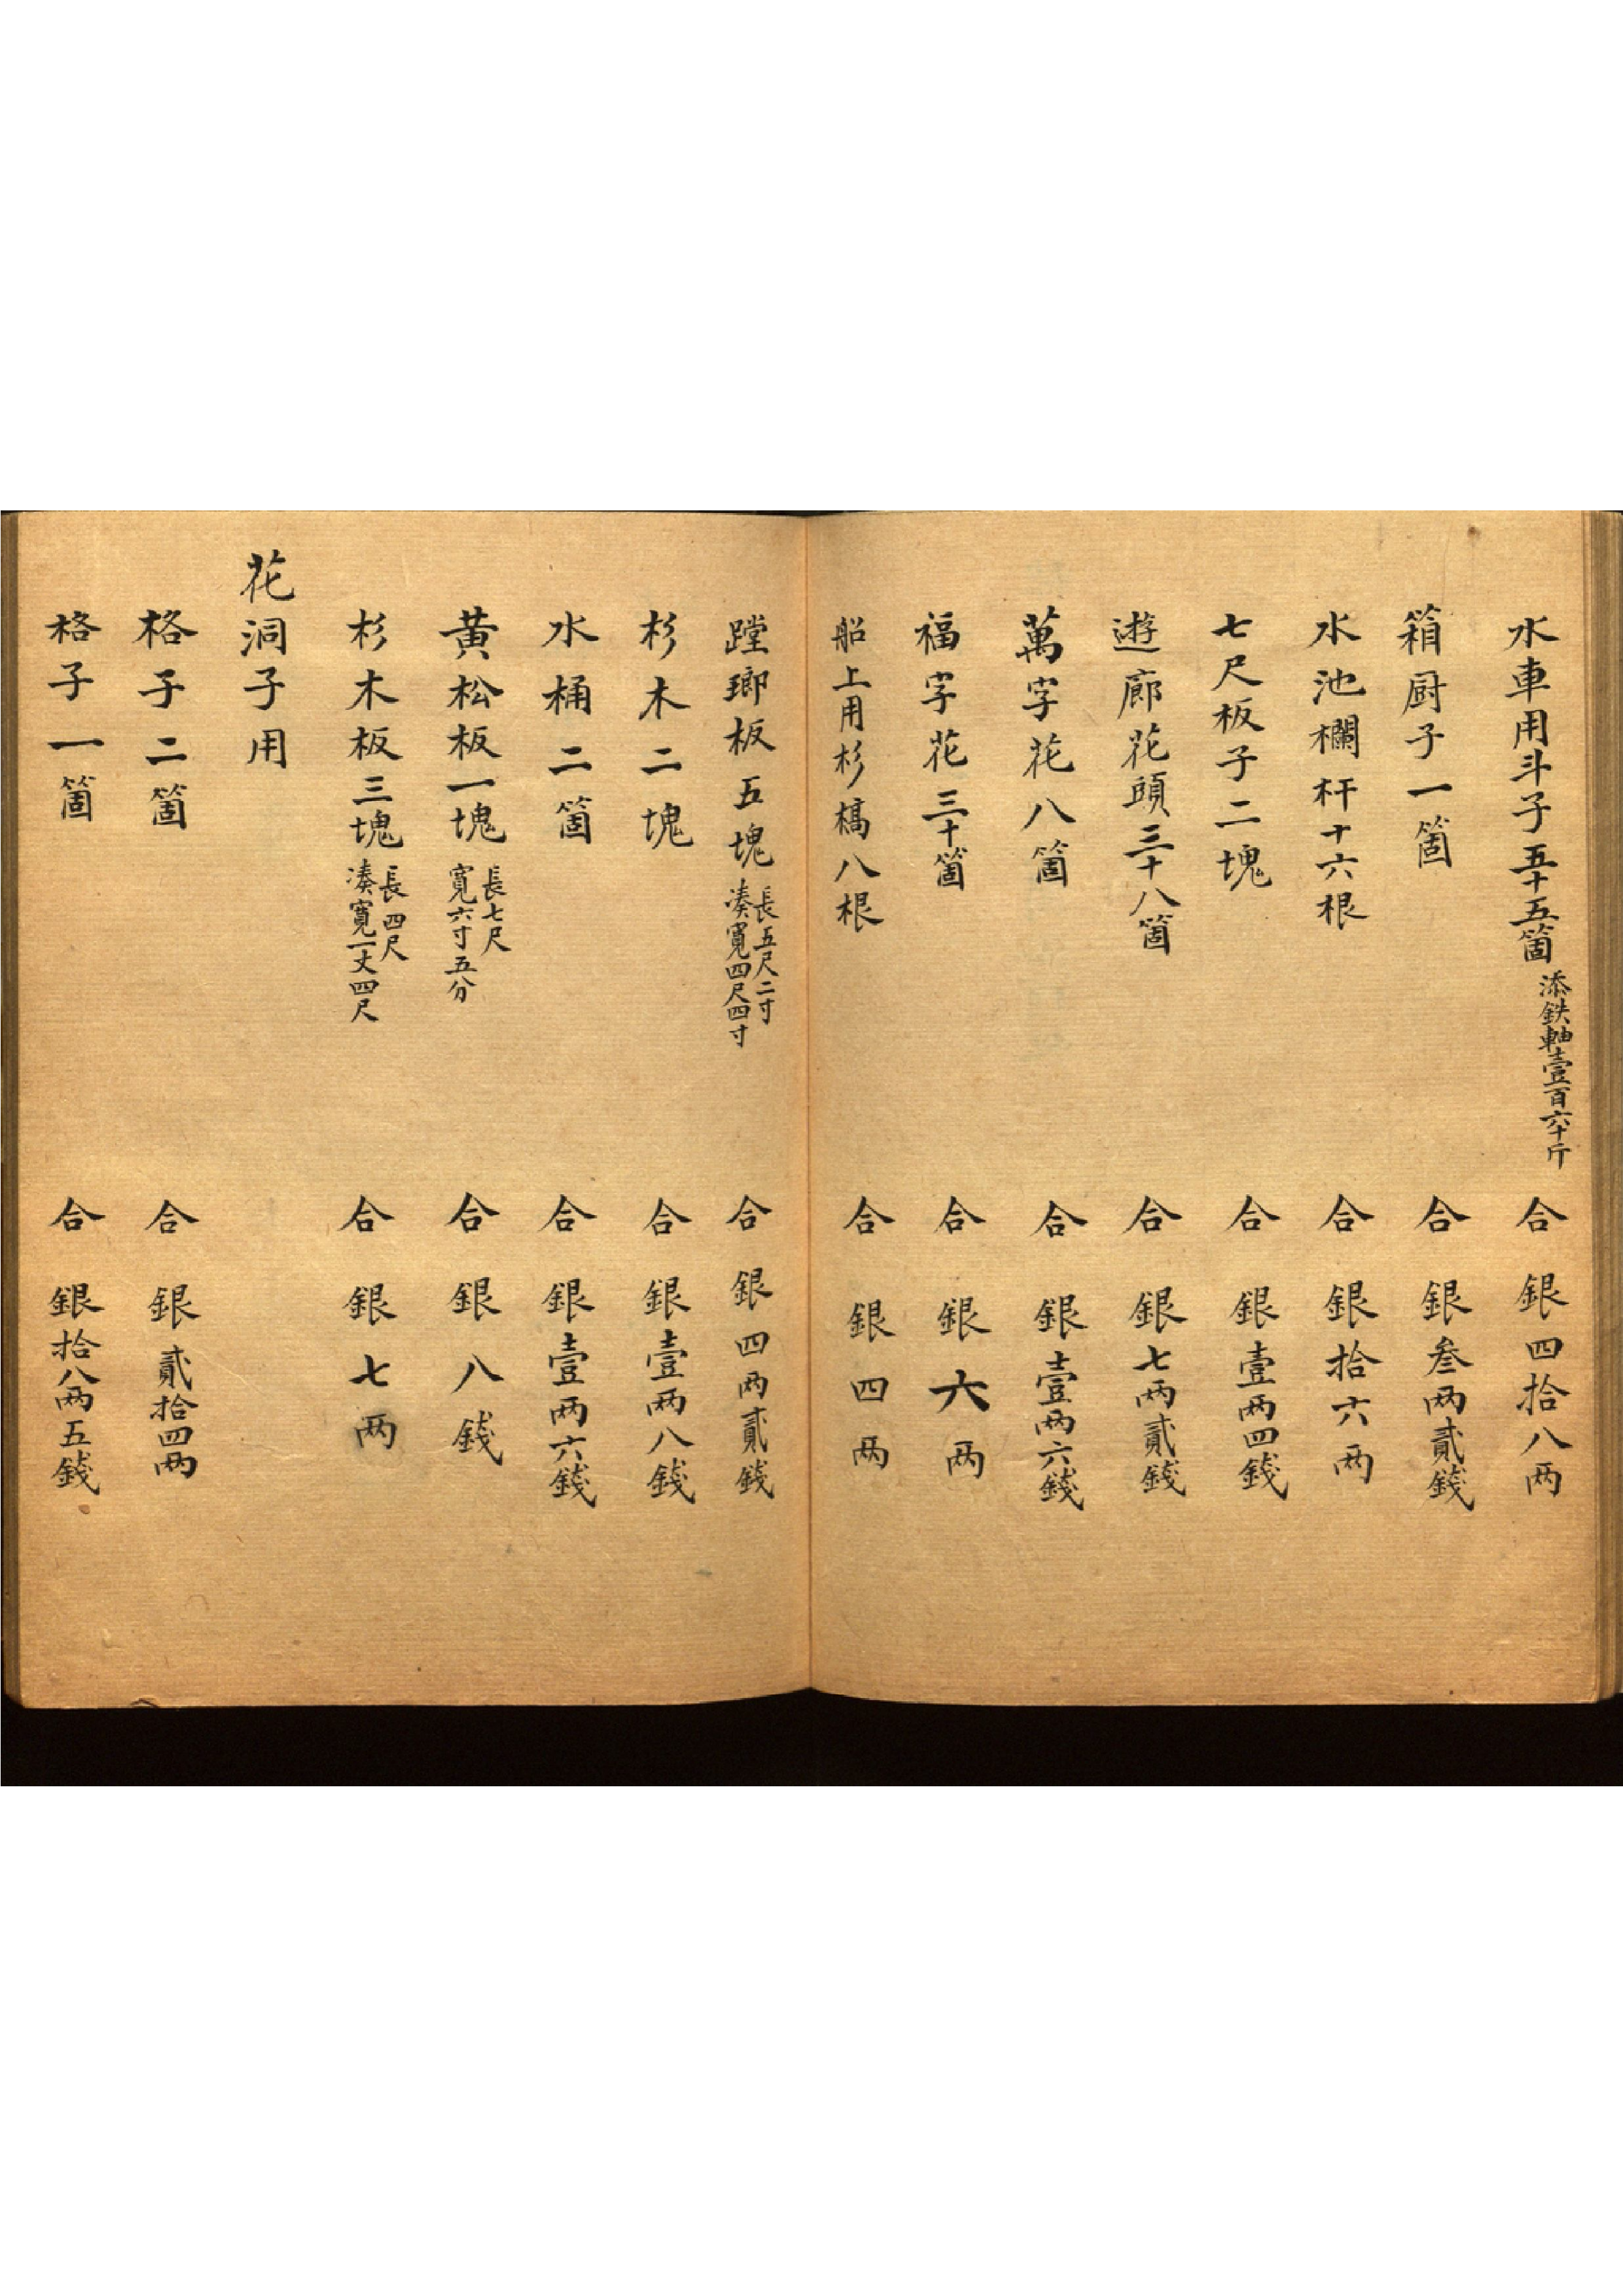 水車用斗子五十五箇 添鉄軸壹百六十斤 合 銀四拾八两
箱厨子一箇 合 銀叁两貳錢
水池欄杆十六根 合 銀拾六两
七尺板子二塊 合 銀壹两四錢
遊廊花頭三十八箇 合 銀七两貳錢
萬字花八箇 合 銀壹两六錢
福字花三十箇 合 銀六两
船上用杉槁八根 合 銀四两
蹚瑯板五塊 長五尺二寸 凑寬四尺四寸 合 銀四两貳錢
杉木二塊 合 銀壹两八錢
水桶二箇 合 銀壹两六錢
黄松板一塊 長七尺 寬六寸五分 合 銀八錢
杉木板三塊 長四尺 凑寬一丈四尺 合 銀七两
花洞子用
格子二箇 合 銀貳拾四两
格子一箇 合 銀拾八两五錢